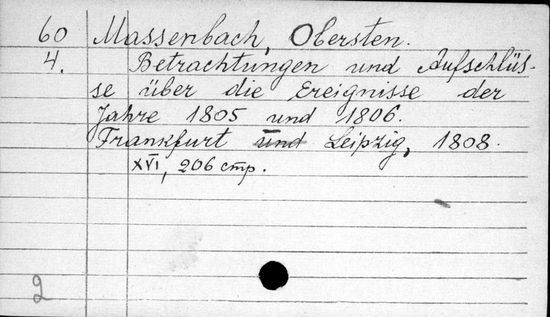 60 Massenbach, Obersten.
4. Betrachtungen und Aufschlüs-
se über die Ereignisse der
Jahre 1805 und 1806.
Frankfurt und Leipzig, 1808.
XVI, 206 стр.
2